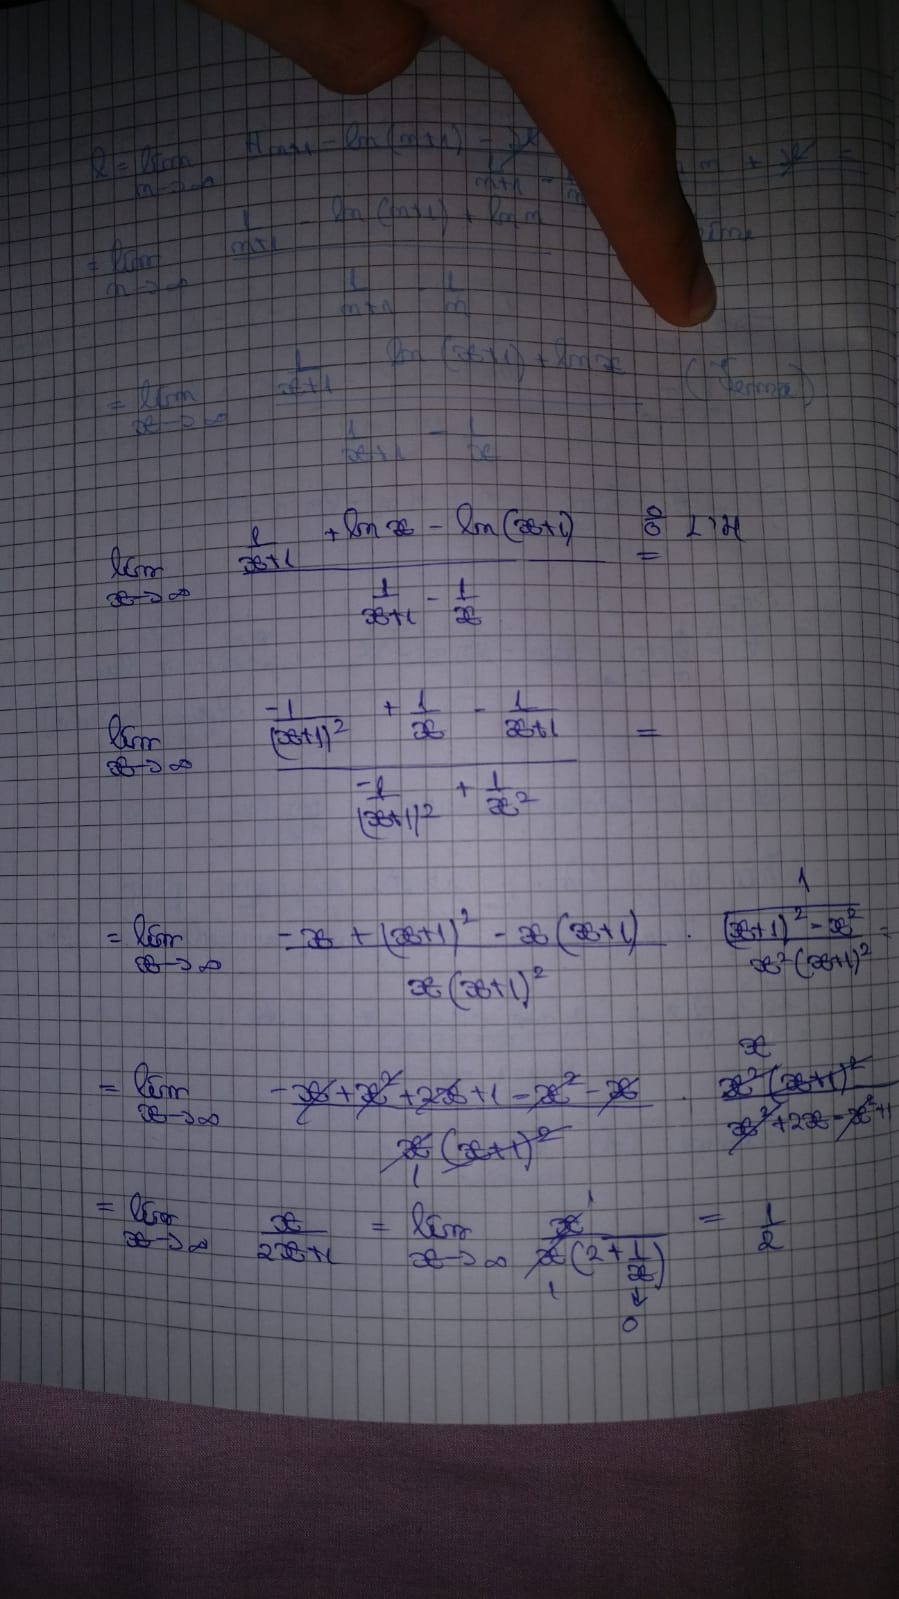 l = lim n→∞ H n+1 - ln(n+1) -
1/(n+1) -
= lim n→∞ (1/(n+1) - ln(n+1) + ln n) / (1/(n+1) - 1/n)
= lim x→∞ (1/(x+1) - ln(x+1) + ln x) / (1/(x+1) - 1/x)
lim x→∞ (1/(x+1) + ln x - ln(x+1)) / (1/(x+1) - 1/x) = 0/0 L'H
lim x→∞ (-1/(x+1)² + 1/x - 1/(x+1)) / (-1/(x+1)² + 1/x²) =
= lim x→∞ (-x + (x+1)² - x(x+1)) / (x(x+1)²) · 1 / (((x+1)² - x²) / (x²(x+1)²)) =
= lim x→∞ (-x + x² + 2x + 1 - x² - x) / (x(x+1)²) · x²(x+1)² / (x² + 2x - x² + 1) x 1
= lim x→∞ x / (2x+1) = lim x→∞ x / (x(2 + 1/x)) = 1/2
1 1 0